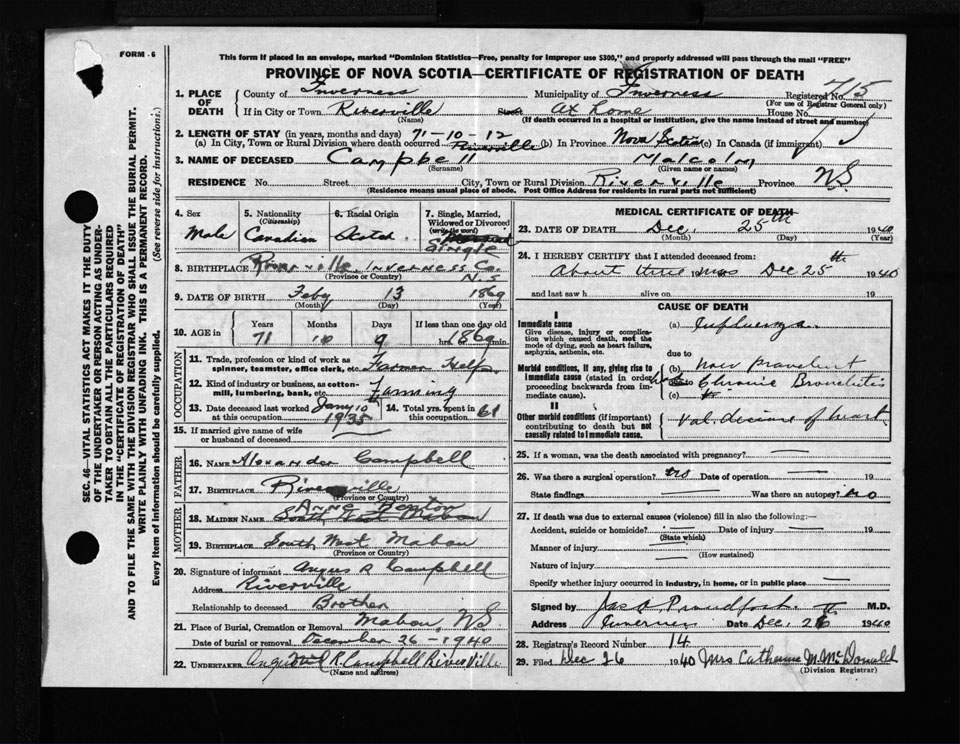 FORM - 6
This form if placed in an envelope, marked "Dominion Statistics—Free, penalty for improper use $300," and properly addressed will pass through the mail "FREE"
PROVINCE OF NOVA SCOTIA—CERTIFICATE OF REGISTRATION OF DEATH
1. PLACE OF DEATH
County of Inverness Municipality of Inverness Registered No. 715
(For use of Registrar General only)
If in City or Town Riverville (Name) Street At Home House No.
(If death occurred in a hospital or institution, give the name instead of street and number)
2. LENGTH OF STAY (in years, months and days) 71-10-12
(a) In City, Town or Rural Division where death occurred Riverville (b) In Province Nova Scotia (c) In Canada (if immigrant)
3. NAME OF DECEASED Campbell (Surname) Malcolm (Given name or names)
RESIDENCE No. Street City, Town or Rural Division Riverville Province NS.
(Residence means usual place of abode. Post Office Address for residents in rural parts not sufficient)
4. Sex Male
5. Nationality (Citizenship) Canadian
6. Racial Origin Scotch
7. Single, Married, Widowed or Divorced (write the word) Single
8. BIRTHPLACE Riverville, Inverness Co. N.S
(Province or Country)
9. DATE OF BIRTH Feby 13 1869
(Month) (Day) (Year)
10. AGE in Years 71 Months 10 Days 9 If less than one day old hrs. 1869 min.
OCCUPATION
11. Trade, profession or kind of work as spinner, teamster, office clerk, etc. Farmer Help
12. Kind of industry or business, as cotton-mill, lumbering, bank, etc. Farming
13. Date deceased last worked at this occupation Jany 10 1935
14. Total yrs. spent in this occupation 61
15. If married give name of wife or husband of deceased
FATHER
16. Name Alexander Campbell
17. Birthplace Riverville
(Province or Country)
MOTHER
18. Maiden Name Anne
South West Mabou
19. Birthplace South West Mabou
(Province or Country)
20. Signature of informant Angus R Campbell
Address Riverville
Relationship to deceased Brother
21. Place of Burial, Cremation or Removal Mabou, NS
Date of burial or removal December 26 - 1940
22. Undertaker Angus R. Campbell Riverville
(Name and address)
MEDICAL CERTIFICATE OF DEATH
23. DATE OF DEATH Dec. 25th 1940
(Month) (Day) (Year)
24. I HEREBY CERTIFY that I attended deceased from:
About three mos Dec 25th 1940
and last saw h alive on 19
CAUSE OF DEATH
I
Immediate cause
Give disease, injury or complication which caused death, not the mode of dying, such as heart failure, asphyxia, asthenia, etc.
(a) Influenza
due to
Morbid conditions, if any, giving rise to immediate cause (stated in order proceeding backwards from immediate cause).
(b) Now prevalent
Chronic Bronchitis
(c)
II
Other morbid conditions (if important) contributing to death but not causally related to immediate cause.
Val. disease of heart
25. If a woman, was the death associated with pregnancy?
26. Was there a surgical operation? no Date of operation 19
State findings Was there an autopsy? no
27. If death was due to external causes (violence) fill in also the following:—
Accident, suicide or homicide (State which) Date of injury 19
Manner of injury
(How sustained)
Nature of injury
Specify whether injury occurred in industry, in home, or in public place
Signed by Jas A Proudfoot M.D.
Address Inverness Date Dec. 26 1940
28. Registrar's Record Number 14
29. Filed Dec 26 1940 Mrs Catherine M. McDonald
(Division Registrar)
SEC. 46—VITAL STATISTICS ACT MAKES IT THE DUTY
OF THE UNDERTAKER OR PERSON ACTING AS UNDER-
TAKER TO OBTAIN ALL THE PARTICULARS REQUIRED
IN THE "CERTIFICATE OF REGISTRATION OF DEATH"
AND TO FILE THE SAME WITH THE DIVISION REGISTRAR WHO SHALL ISSUE THE BURIAL PERMIT.
WRITE PLAINLY WITH UNFADING INK. THIS IS A PERMANENT RECORD.
Every item of information should be carefully supplied. (See reverse side for instructions.)